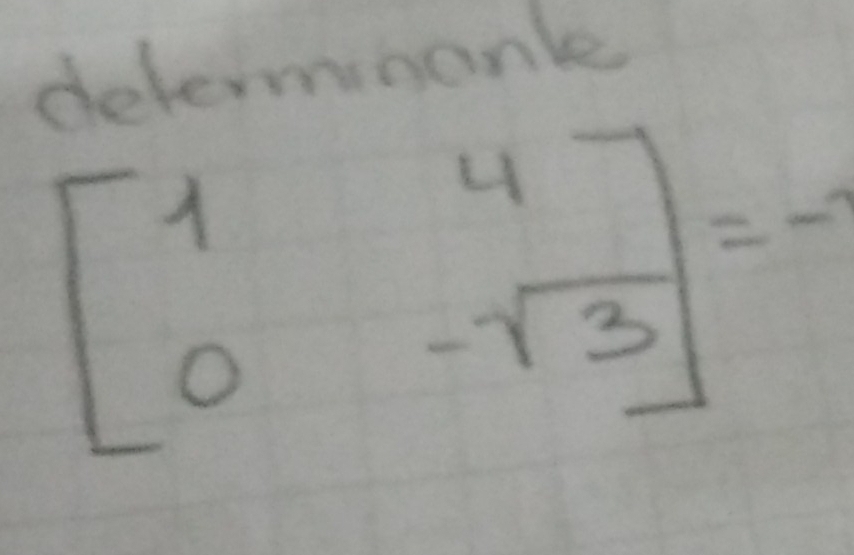 determinante
[ 1 4 ] = -
[ 0 -√3 ]